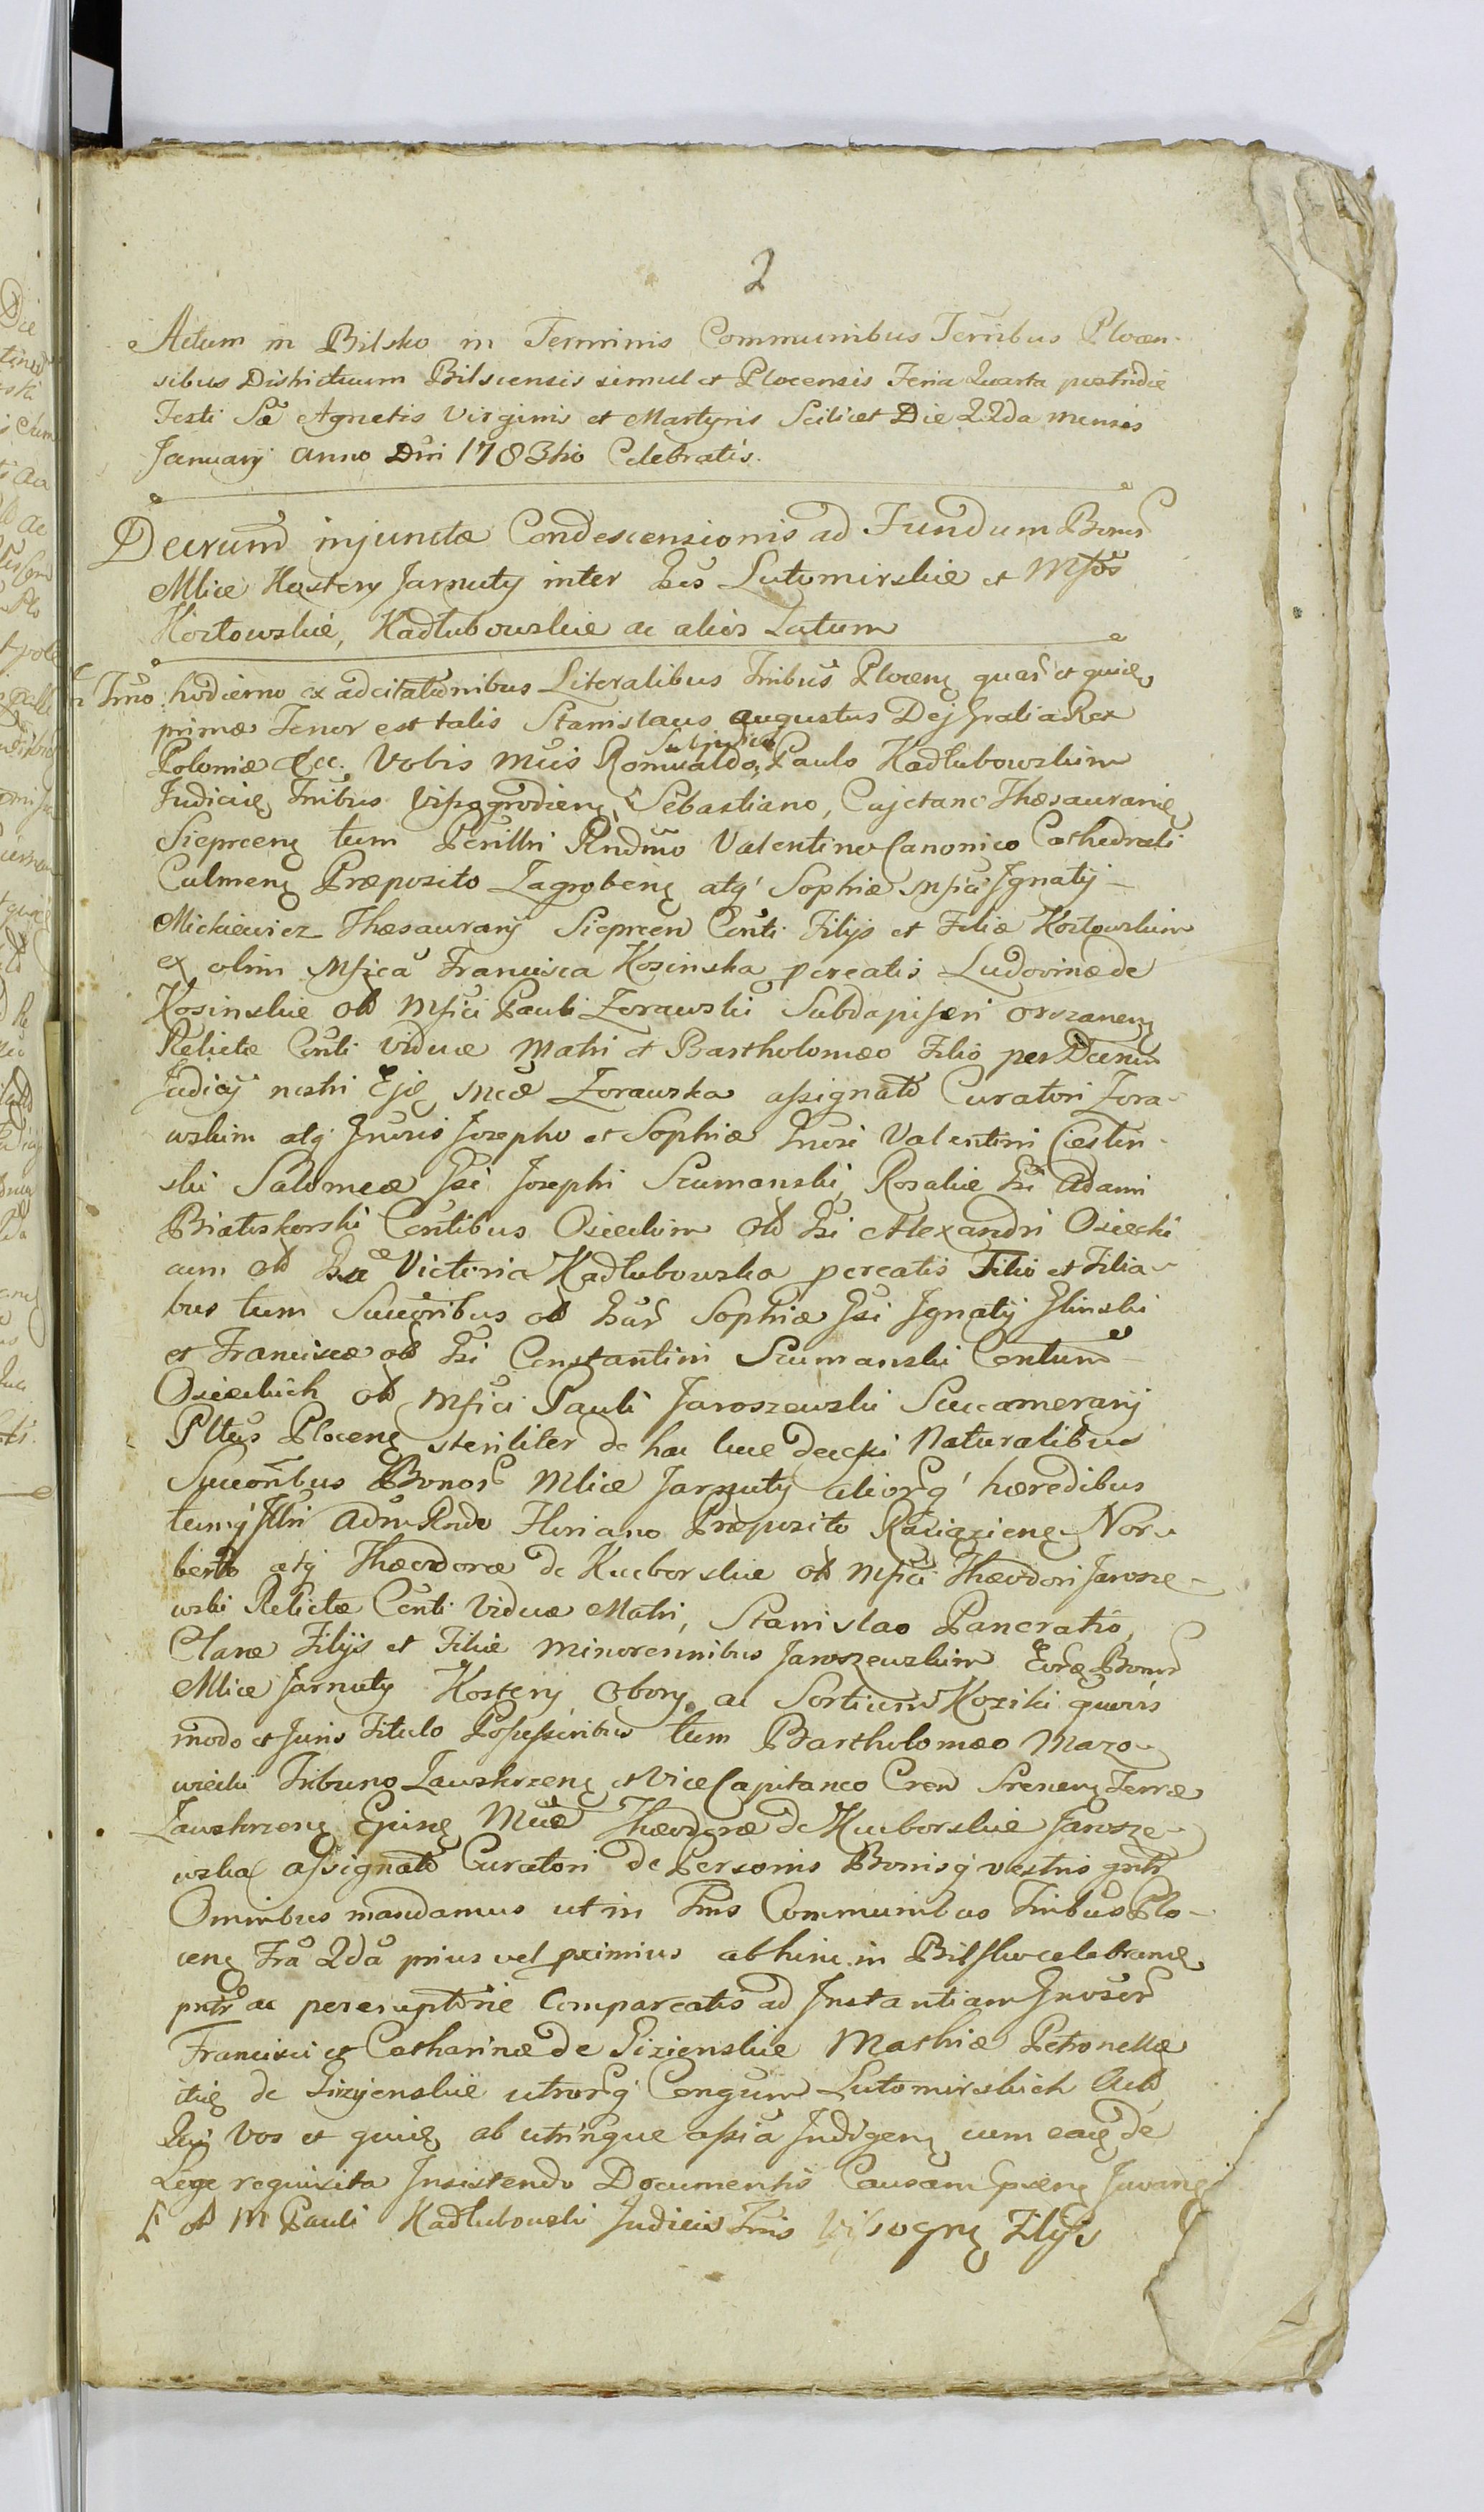 2
Actum in Bilsko in Terminis Communibus Terribus Plocen-
sibus Districtuum Bilscensis simul et Plocensis Feria Quarta postridie
Festi Sæ Agnetis Virginis et Martyris Scilicet Die 22da mensis
January anno Dni 1783tio Celebratis.
Decrum injunctæ Condescensionis ad Fundum Bonor
Mlice Kostery Jarnuty inter Gsos Lutomirskie et Mfcos
Kozłowskie, Kadłubowskie ac alios Latum
In Tmo hodierno ex adcitationibus Literalibus Tribus Plocen quar et quidę
primæ Tenor est talis Stanislaus Augustus Dej Gratia Rex
Poloniæ &cc. Vobis Mcis Romualdo Subjudici Paulo Kadłubowskim
Judicię Tribus Vissogrodien [ Sebastiano, Cajetano Thesauranię
Sieprceng tum Perilltri Rndmo Valentino Canonico Cathedrali
Culmeng Præposito Zagrobeng atq Sophiæ Mfici Ignatij
Mickiewicz Thæsaurarij Sieprcen Conti Filijs et Filiæ Kozłowskim
ex olim Mfica Francisca Kosinska pcreatis Ludovinæ de
Kosinskie olb Mfici Pauli Zorawski Subdapiferi Orszaneng
Relictæ Conti viduæ Matri et Bartholomæo Filio per Dcrum
Judicij nostri Ejq Mcæ Zorawska assignato Curatori Zora-
wskim atq Gnosis Josepho et Sophiæ Gnosi Valentini Ciesłin-
ski Salomeæ Gsi Josephi Szumanski, Rosaliæ Gsi Adami
Białoskorski Contibus Osieckim olb Gsi Alexandri Osiecki
cum olb Gsa Victoria Kadłubowska pcreatis Filio et Filia-
bus tum Succoribus olb Gsar Sophiæ Gsi Ignatij Glinski
et Franciscæ olb Gsi Constantini Szumanski Contum
Osieckich olb Mfici Pauli Jaroszewski Succamerarij
Pltus Plocenę steriliter de hac luce decessi Naturalibus
Succoribus Bonor Mlice Jarnuty aliorq hæredibus
tumq Illri Adm Rndo Floriano Præposito Raciązieng Nor-
berto atq Thæodoræ de Kucborskie olb Mfici Thæodori Jarosze-
wski Relictæ Conti Viduæ Matri, Stanislao Pancratio,
Claræ Filijs et Filiæ minorennibus Jaroszewskim Eorq Bonor
Mlice Jarnuty Kostery Obory, ac Sortium Koziki quovis
modo et Juris Titulo Possessoribus tum Bartholomæo Mazo-
wiecki Tribuno Zawskrzeng et Vice Capitaneo Cren Sreneng Terræ
Zawskrzeng Ejusq Mcæ Thæodoræ de Kucborskie Jarosze-
wska assignato Curatori de Personis Bonisq vestris gntr
Omnibus mandamus ut in Tmis Communibus Tribus Plo-
ceng Fra 2da prius vel proximius abhinc in Bilsko celebrand
pntr ac peremptorie Compareatis ad Instantiam Gnosor
Francisci et Catharinæ de Gizienskie Mathiæ Petronellæ
itiq de Gizyenskie utrorq Congum Lutomirskich Actor
Qui Vos et quidę ab utrinque assia Indigeng cum eaq de
Lege requisita Insistendo Documentis Causam præng Juvang
[ olb M Pauli Kadłubowski Judicis Tris Vissogrg Filijs